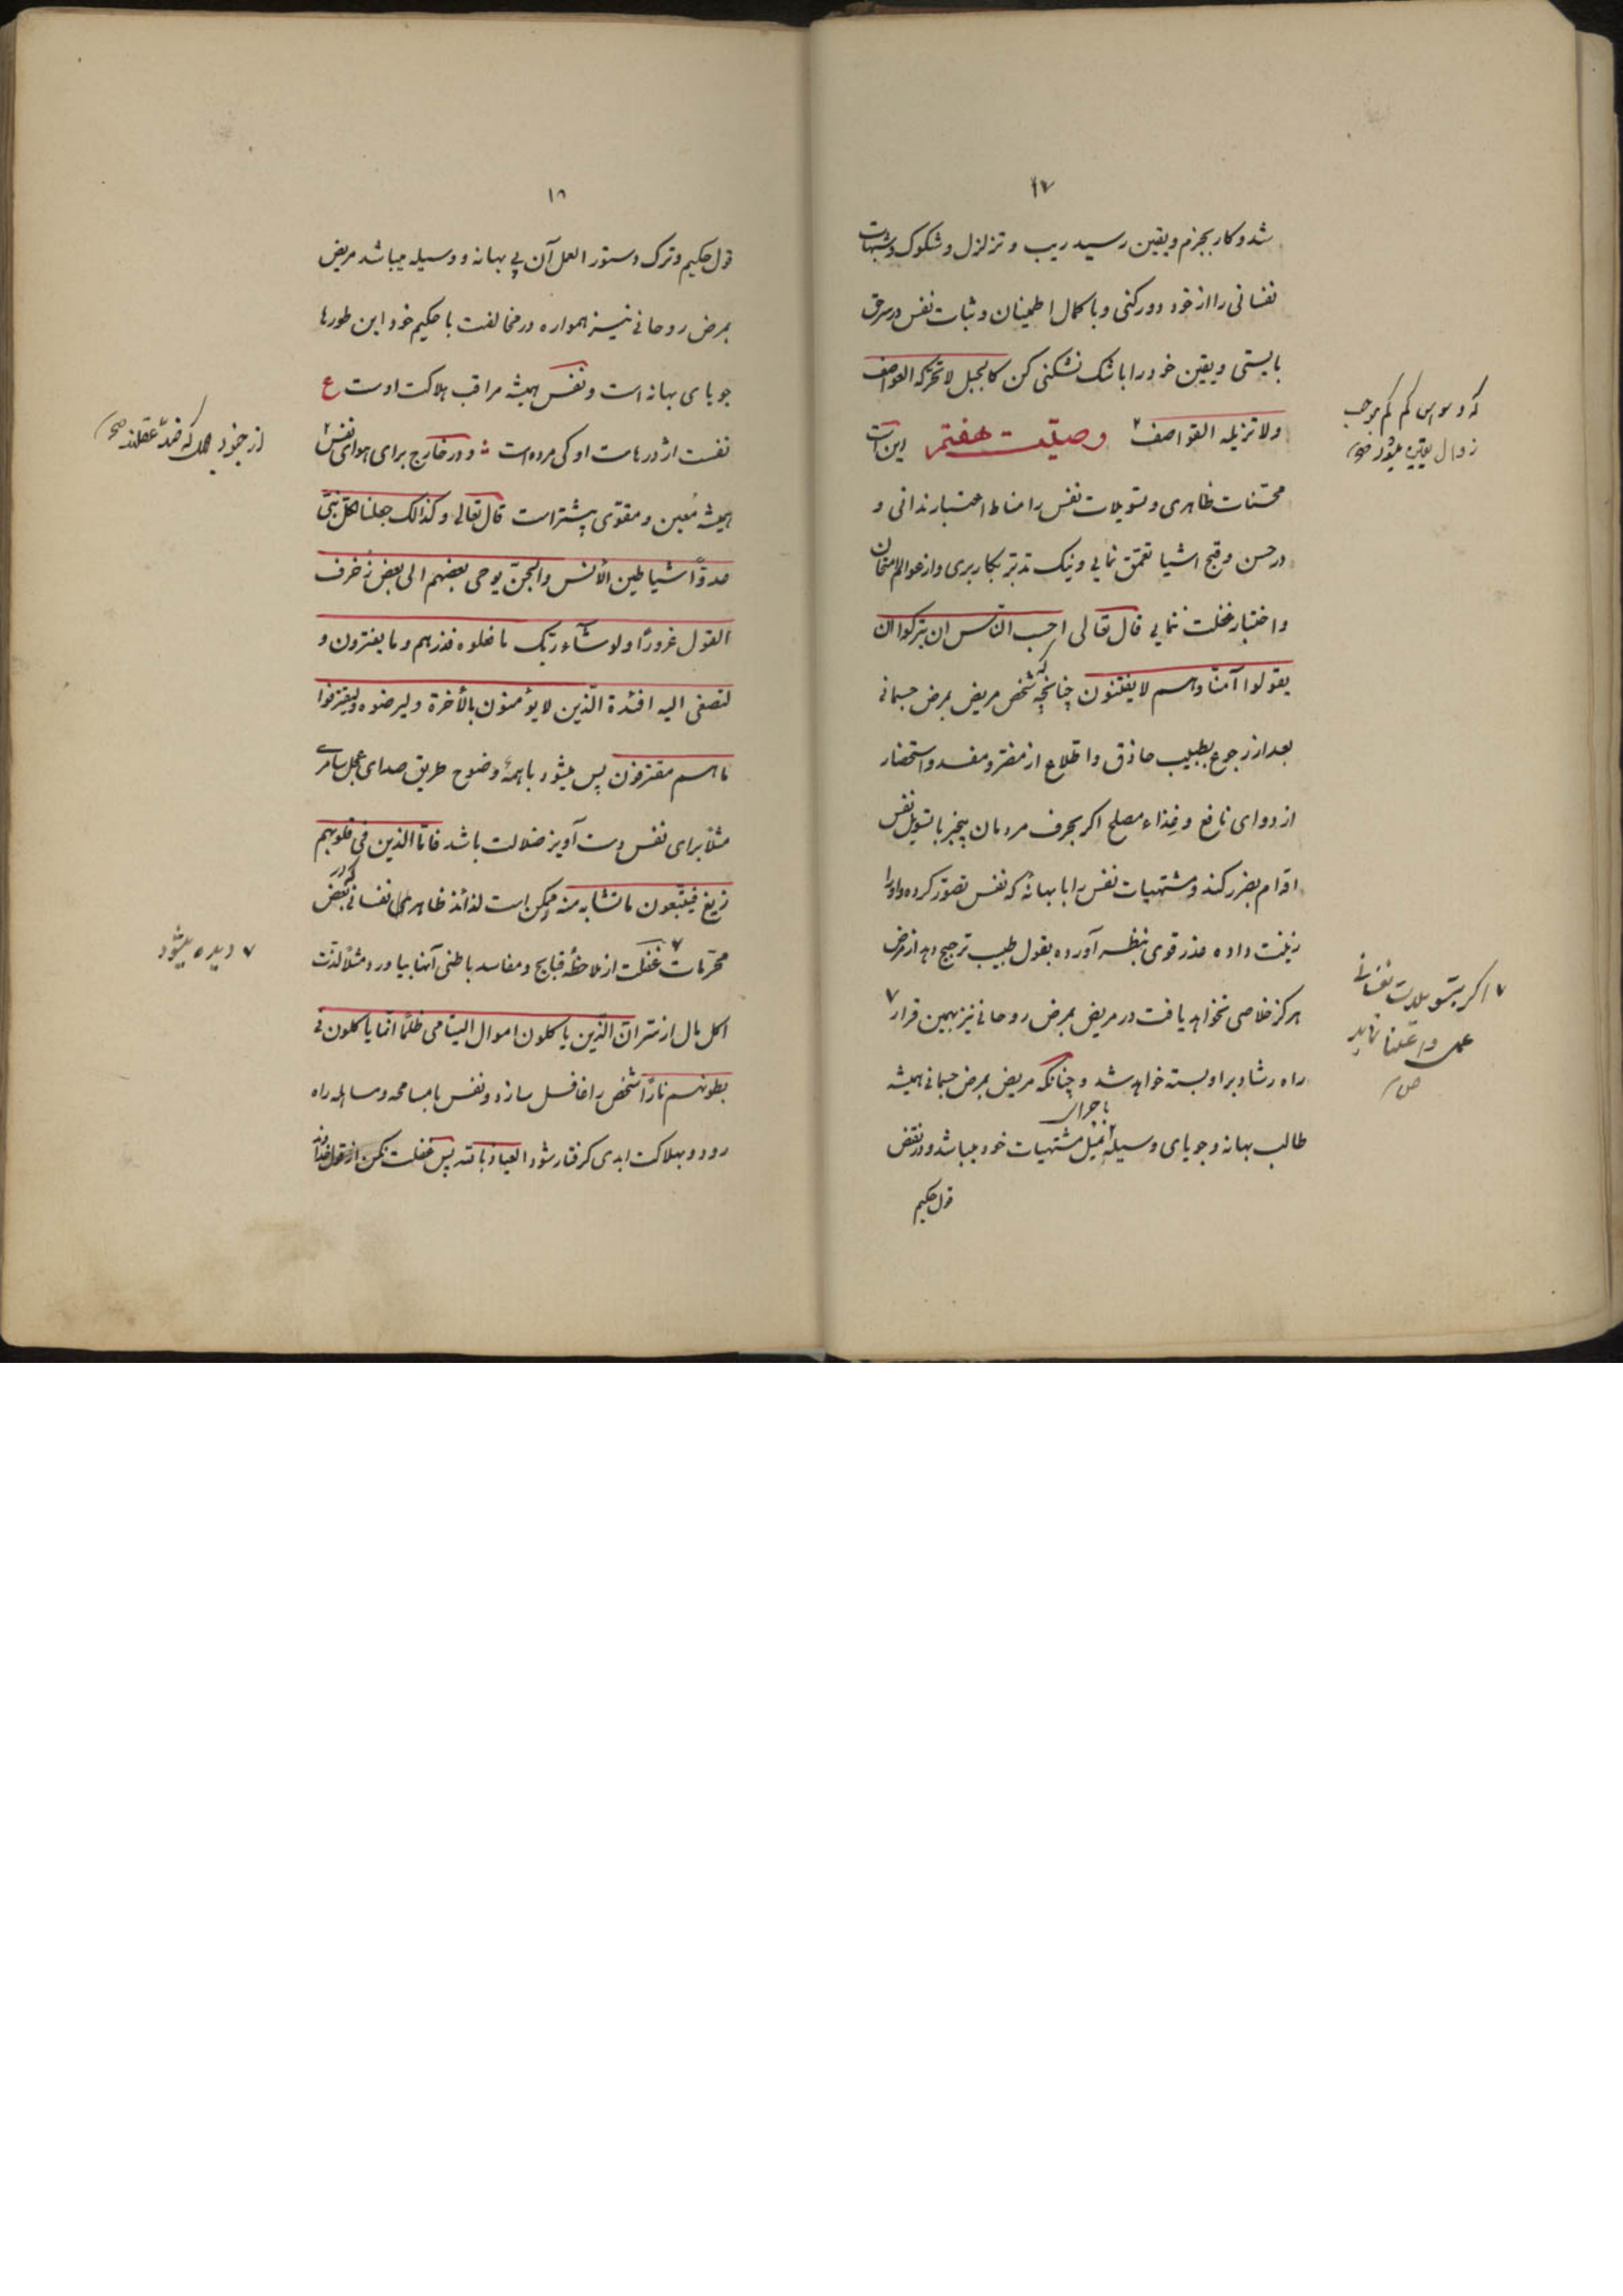 ۱۷
شد و کار بجزم و یقین رسید ریب و تزلزل و شکوک و شبهات
نفسانی را از خود دور کنی و با کمال اطمینان و ثبات نفس در سر حق
بایستی و یقین خود را با شک نشکنی کن کالجبل لا تحرکه العواصف
ولا تزیله القواصف ۲ وصیّت هفتم این است
که وسواس کم کم موجب
زوال یقین میشود صح
محسّنات ظاهری و تسویلات نفس را مناط اعتبار ندانی و
در حسن و قبح اشیا تعمّق نمایی و نیک تدبّر بکار بری و از عوالم امتحان
و اختبار غفلت ننمایی قال تعالی احسب النّاس ان یترکوا ان
یقولوا آمنّا و هم لا یفتنون چنانچه شخص مریض بمرض جسمانی
بعد از رجوع بطبیب حاذق و اطلاع از مضرّ و مفسد و استحضار
از دوای نافع و غذاء مصلح اکر بحرف مردمان بیخبر یا تسویل نفس
اقدام بضرر کند و مشتهیات نفس را با بهانهٔ که نفس تصوّر کرده و او را
زینت داده عذر قوی بنظر آورده بقول طبیب ترجیح دهد از مرض
هرکز خلاصی نخواهد یافت در مریض بمرض روحانی نیز بهمین قرار ۷
۷ اکر بتسویلات نفسانی
عمل و اعتنا نماید
صح
راه رشاد بر او بسته خواهد شد و چنانکه مریض بمرض جسمانی همیشه
طالب بهانه و جویای وسیلهٔ نیل مشتهیات خود میباشد و در نقض
قول حکیم
۱۸
قول حکیم و ترک دستور العمل آن پی بهانه و وسیله میباشد مریض
بمرض روحانی نیز همواره در مخالفت با حکیم خود این طورها
جویای بهانه است و نفس همیشه مراقب هلاکت اوست ع
نفست اژدرهاست او کی مرده است ؛ و در خارج برای هوای نفس ۲
همیشه مُعین و مقوّی بیشتر است قال تعالی و کذالک جعلنا لکل نبیّ
عدوّاً شیاطین الأنس و الجنّ یوحی بعضهم الی بعض زخرف
القول غروراً و لو شآء ربّک ما فعلوه فذرهم و ما یفترون و
لتصغی الیه افئدة الّذین لا یؤمنون بالأخرة و لیرضوه و لیقترفوا
ما هم مقترفون پس میشود با همهٔ وضوح طریق صدای عجل سامری
مثلاً برای نفس دست آویز ضلالت باشد فامّا الذین فی قلوبهم
زیغ فیتّبعون ما تشابه منه و ممکن است لذائذ ظاهری نفسانی که در بعض
محرّمات ۷ غفلت از ملاحظهٔ قبایح و مفاسد باطنی آنها بیاورد مثلاً لذّت
۷ دیده میشود
اکل مال از سرّ انّ الذّین یاکلون اموال الیتامی ظلماً انّما یاکلون فی
بطونهم ناراً شخص را غافل سازد و نفس با مسامحه و مساهله راه
رود و بهلاکت ابدی کرفتار شود العیاذ بالله پس غفلت مکن از قول خداوند